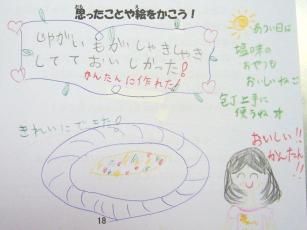 思ったことや絵をかこう！
じゃがいもがしゃきしゃき
してておいしかった！
かんたんに作れた！
あつい日は
塩味の
おやつも
おいしいねこ
包丁上手に
使うねオ
きれいにできた！
おいしい!!
かんたん!!
18